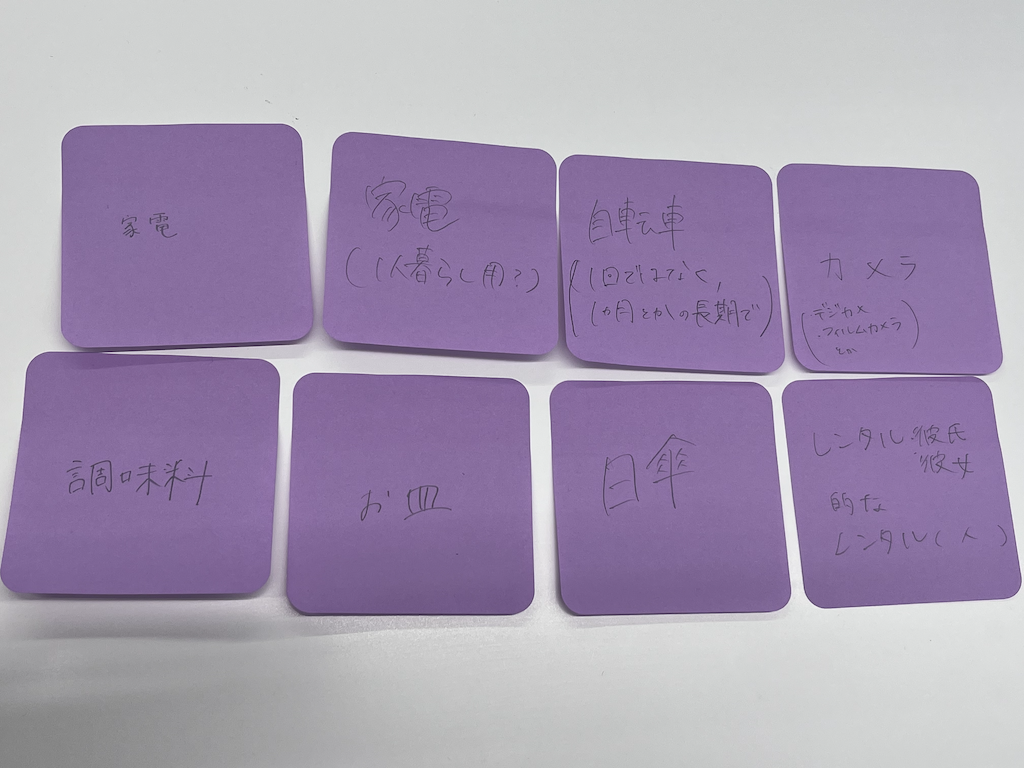 家電
家電
(1人暮らし用?)
自転車
(1回ではなく,
1ヵ月とかの長期で)
カメラ
(デジカメ
・フィルムカメラ
とか)
調味料
お皿
日傘
レンタル彼氏
彼女
的な
レンタル(人)